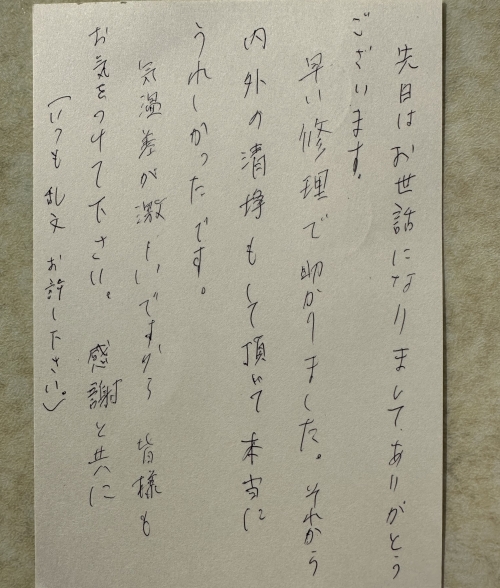 先日はお世話になりましてありがとう
ございます。
早い修理で助かりました。それから
内外の清掃もして頂いて本当に
うれしかったです。
気温差が激しいですから 皆様も
お気をつけて下さい。 感謝と共に
(いつも乱文 お許し下さい。)